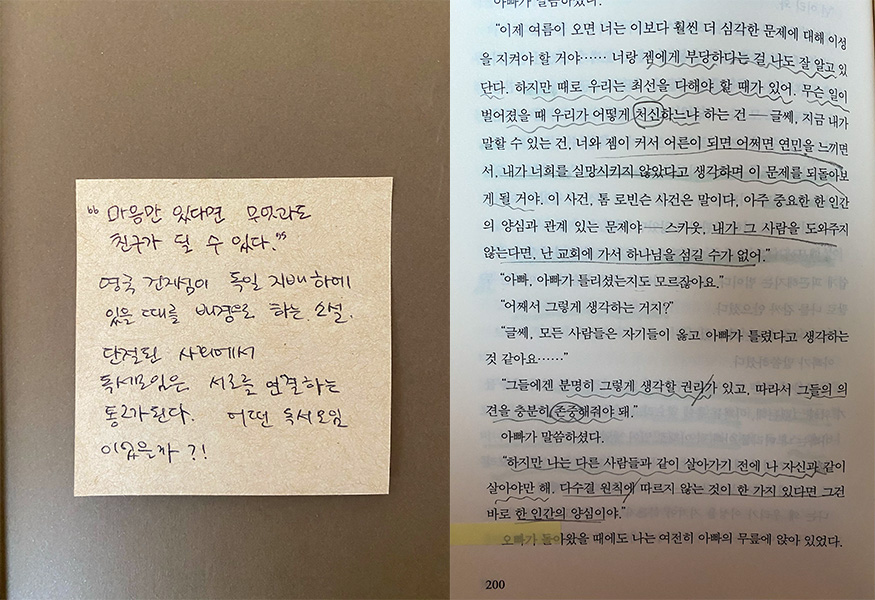 “마음만 있다면 무엇과도
친구가 될 수 있다.”
영국 건지섬이 독일 지배하에
있을 때를 배경으로 하는 소설.
단절된 사회에서
독서모임은 서로를 연결하는
통로가 된다. 어떤 독서모임
이었을까?!
아빠가 말씀하셨다.
“이제 여름이 오면 너는 이보다 훨씬 더 심각한 문제에 대해 이성
을 지켜야 할 거야…… 너랑 젬에게 부당하다는 걸 나도 잘 알고 있
단다. 하지만 때로 우리는 최선을 다해야 할 때가 있어. 무슨 일이
벌어졌을 때 우리가 어떻게 처신하느냐 하는 건 — 글쎄, 지금 내가
말할 수 있는 건, 너와 젬이 커서 어른이 되면 어쩌면 연민을 느끼면
서, 내가 너희를 실망시키지 않았다고 생각하며 이 문제를 되돌아보
게 될 거야. 이 사건, 톰 로빈슨 사건은 말이다, 아주 중요한 한 인간
의 양심과 관계 있는 문제야 — 스카웃, 내가 그 사람을 도와주지
않는다면, 난 교회에 가서 하나님을 섬길 수가 없어.”
“아빠, 아빠가 틀리셨는지도 모르잖아요.”
“어째서 그렇게 생각하는 거지?”
“글쎄, 모든 사람들은 자기들이 옳고 아빠가 틀렸다고 생각하는
것 같아요……”
“그들에겐 분명히 그렇게 생각할 권리가 있고, 따라서 그들의 의
견을 충분히 존중해줘야 돼.”
아빠가 말씀하셨다.
“하지만 나는 다른 사람들과 같이 살아가기 전에 나 자신과 같이
살아야만 해. 다수결 원칙에 따르지 않는 것이 한 가지 있다면 그건
바로 한 인간의 양심이야.”
오빠가 돌아왔을 때에도 나는 여전히 아빠의 무릎에 앉아 있었다.
200